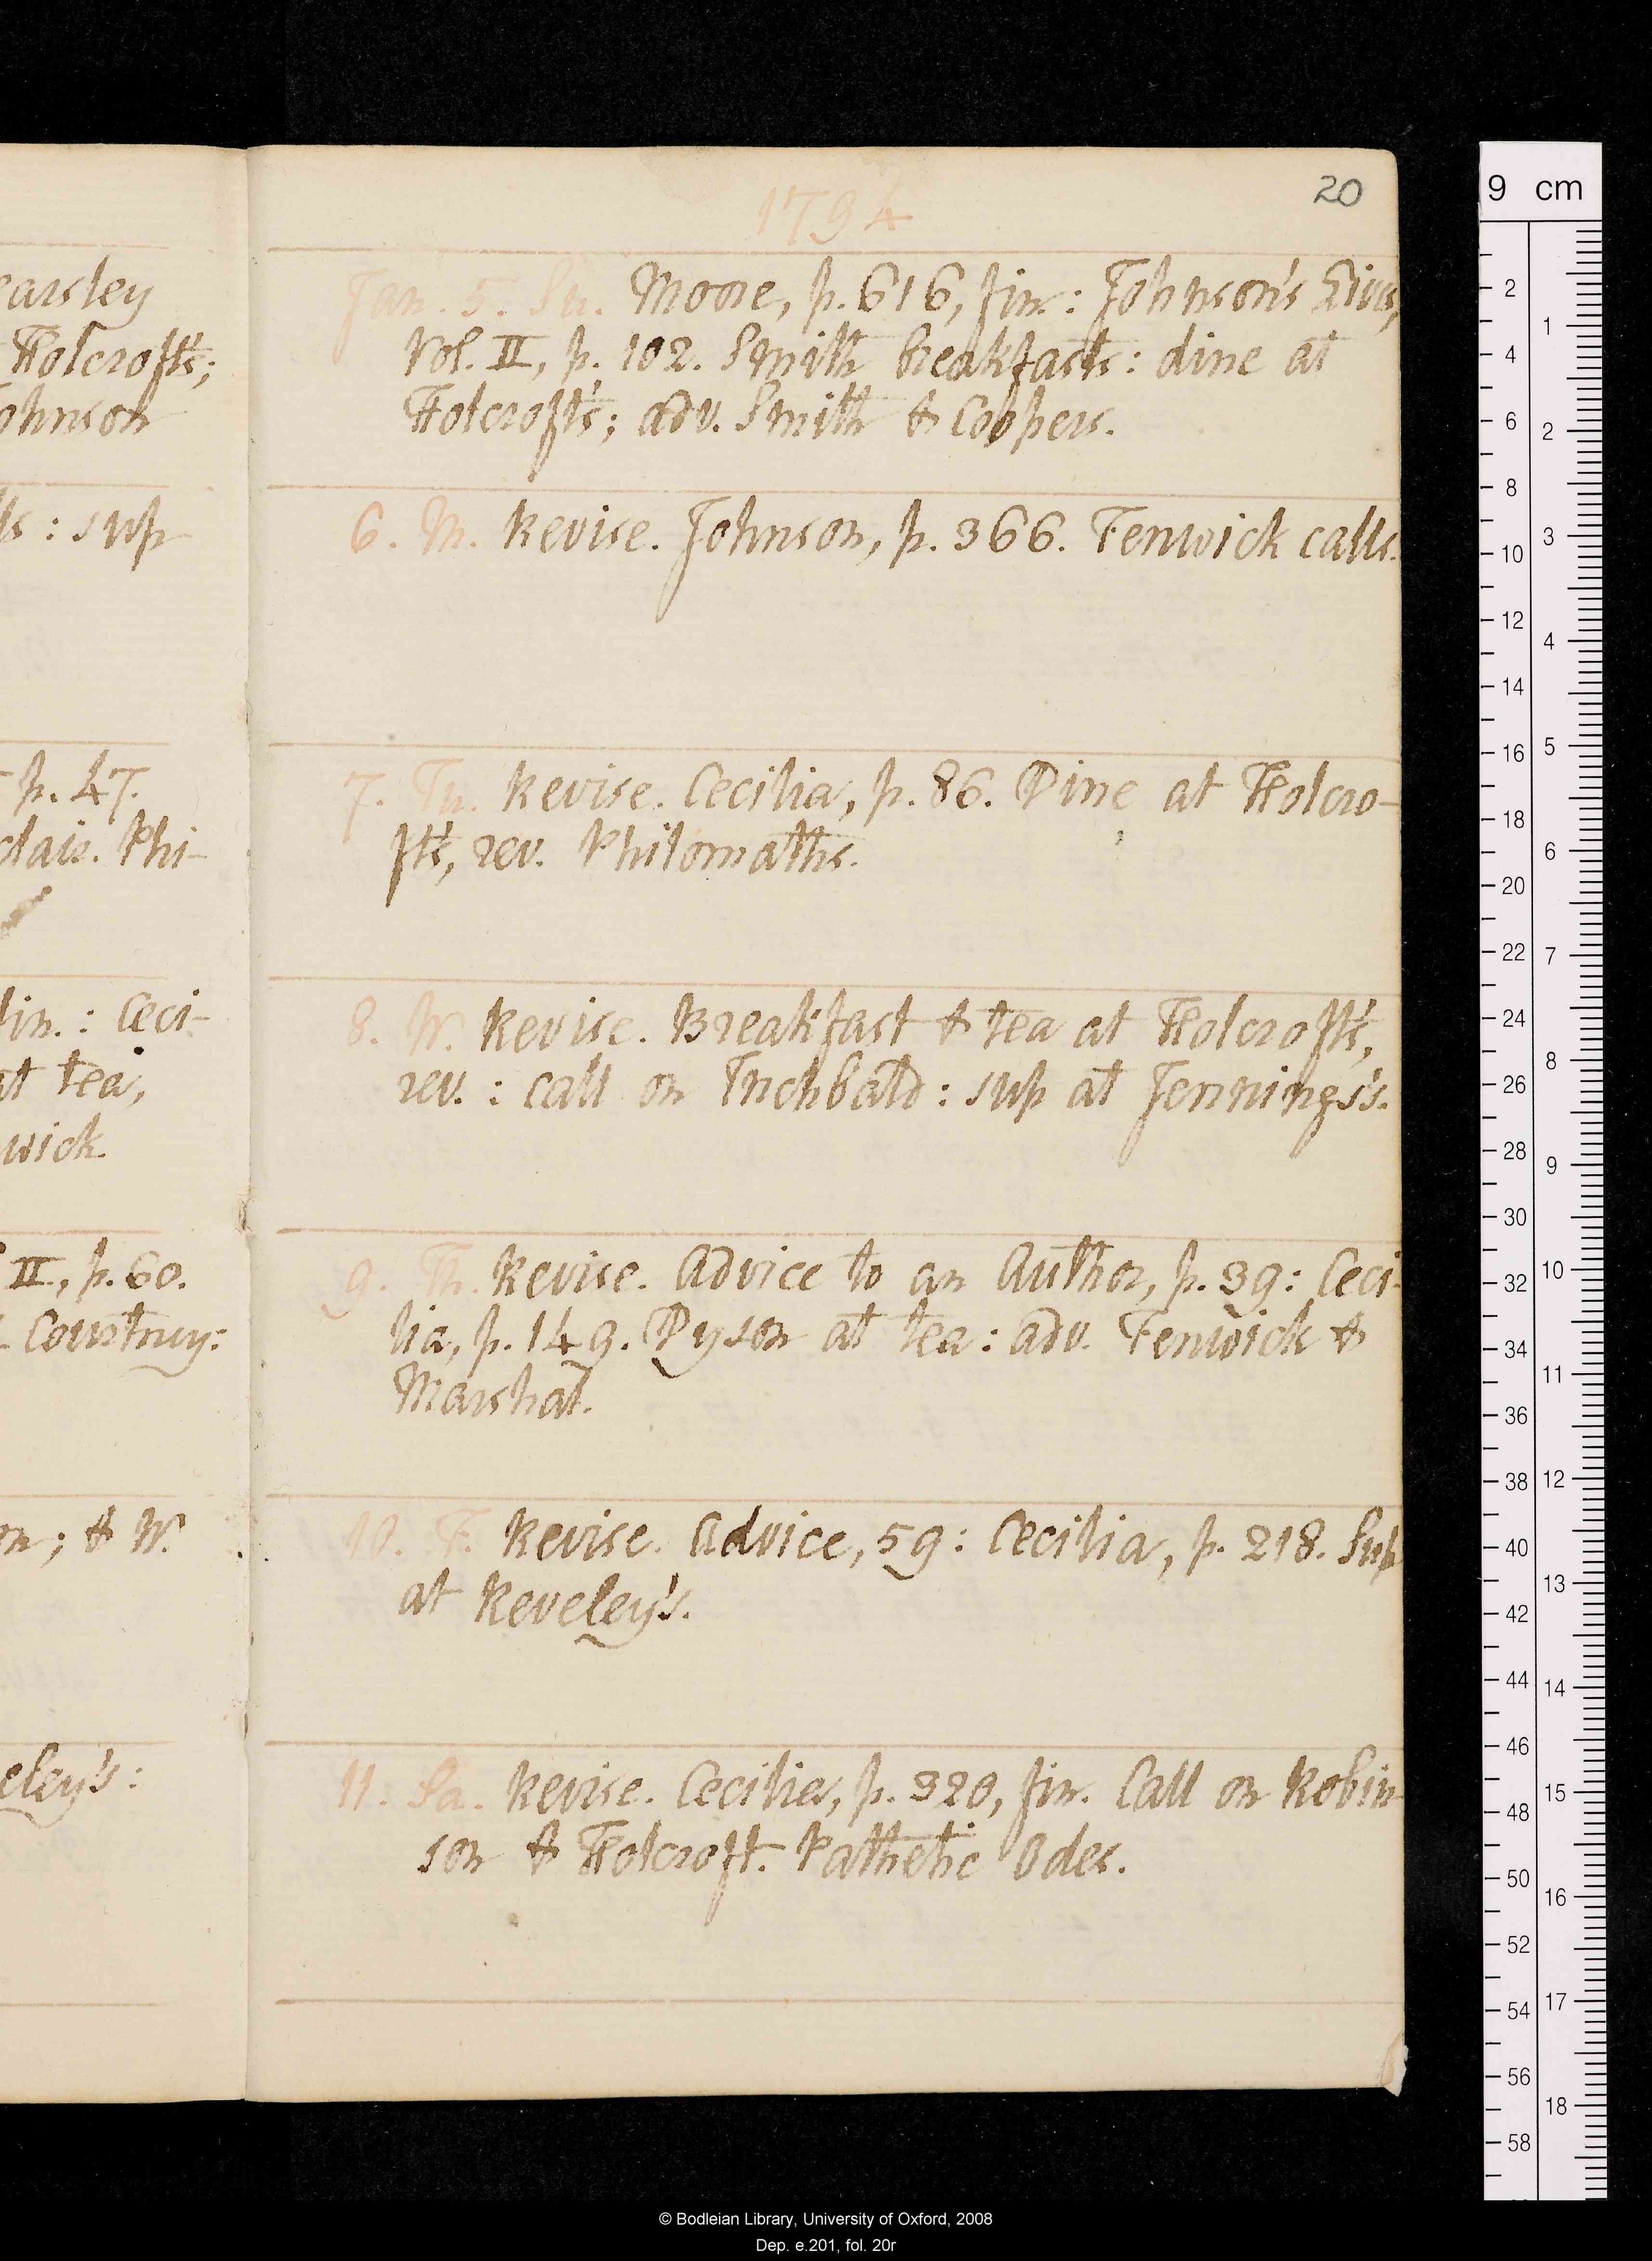 20
1794
Jan. 5. Su. Moore, p. 616, fin.: Johnson's Lives,
Vol. II, p. 102. Smith breakfasts: dine at
Holcroft's; adv. Smith & Coopers.
6. M. Revise. Johnson, p. 366. Fenwick calls.
7. Tu. Revise. Cecilia, p. 86. Dine at Holcro-
ft's, rev. Philomaths.
8. W. Revise. Breakfast & tea at Holcroft's,
rev.: call on Inchbald: sup at Jennings's.
9. Th. Revise. Advice to an Author, p. 39: Ceci-
lia, p. 149. Dyson at tea: adv. Fenwick &
Marshal.
10. F. Revise. Advice, 59: Cecilia, p. 218. Sup
at Reveley's.
11. Sa. Revise. Cecilia, p. 320, fin. Call on Robin-
son & Holcroft. Pathetic Odes.
earsley
Holcroft's;
ohnson
ls: sup
p. 47.
dais. Phi-
fin.: Ceci-
at tea,
wick
II, p. 60.
Courtney:
on; & W.
eley's:
9 cm
2
4
6
8
10
12
14
16
18
20
22
24
26
28
30
32
34
36
38
40
42
44
46
48
50
52
54
56
58
1
2
3
4
5
6
7
8
9
10
11
12
13
14
15
16
17
18
© Bodleian Library, University of Oxford, 2008
Dep. e.201, fol. 20r